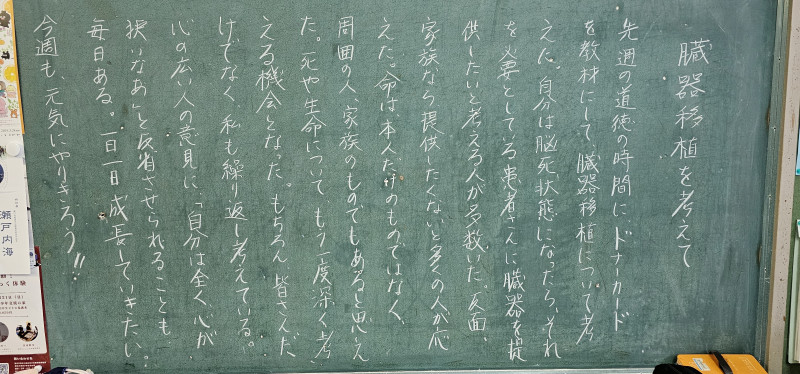 臓器移植を考えて
先週の道徳の時間に、ドナーカード
を教材にして、臓器移植について考
えた。自分は脳死状態になったら、それ
を必要としている患者さんに臓器を提
供したいと考える人が多数いた。反面、
家族なら提供したくないと多くの人が応
えた。命は、本人だけのものではなく、
周囲の人、家族のものでもあると思え
た。死や生命について、もう一度深く考
える機会となった。もちろん、皆さんだ
けでなく、私も繰り返し考えている。
心の広い人の意見に、「自分は全く、心が
狭いなあ」と反省させられることも
毎日ある。一日一日成長していきたい。
今週も、元気にやりきろう!!
瀬戸内海